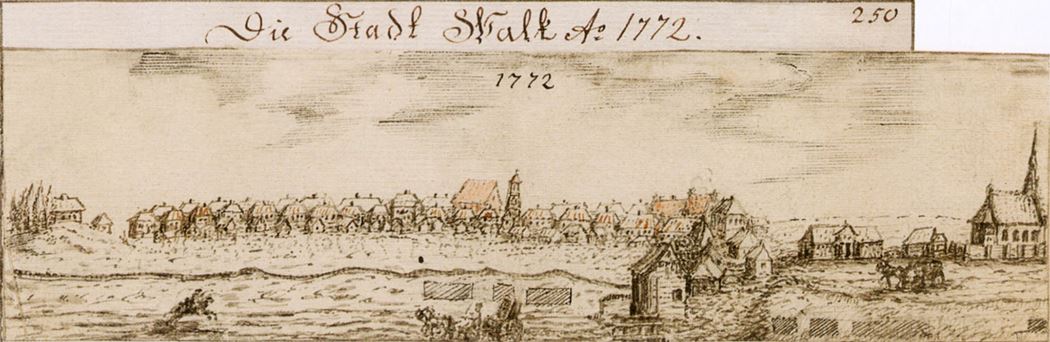 Die Stadt Walk Ao 1772.
250
1772